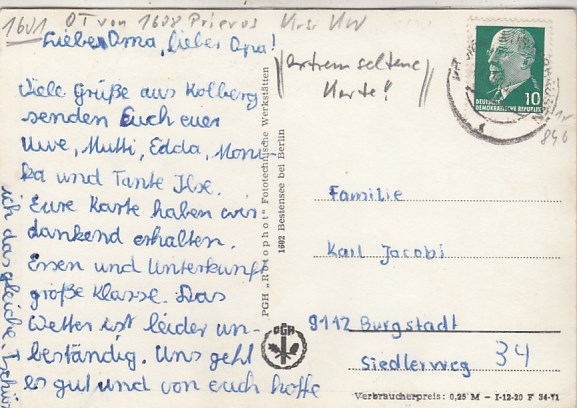 1601 OT von 1608 Prieros Krs. KW
Lieber Oma, lieber Opa!
Viele Grüße aus Kolberg
senden Euch euer
Uwe, Mutti, Edda, Moni-
ka und Tante Ilse.
Eure Karte haben wir
dankend erhalten.
Essen und Unterkunft
große Klasse. Das
Wetter ist leider un-
beständig. Uns geht
es gut und von euch hoffe
ich das gleiche. Tschüß
PGH „Rotophot" Fototechnische Werkstätten
1602 Bestensee bei Berlin
PGH
extrem seltene
Karte!
10
DEUTSCHE
DEMOKRATISCHE REPUBLIK
846
Familie
Karl Jacobi
9112 Burgstädt
Siedlerweg 34
Verbraucherpreis: 0,25 M – I-12-20 F 34-71